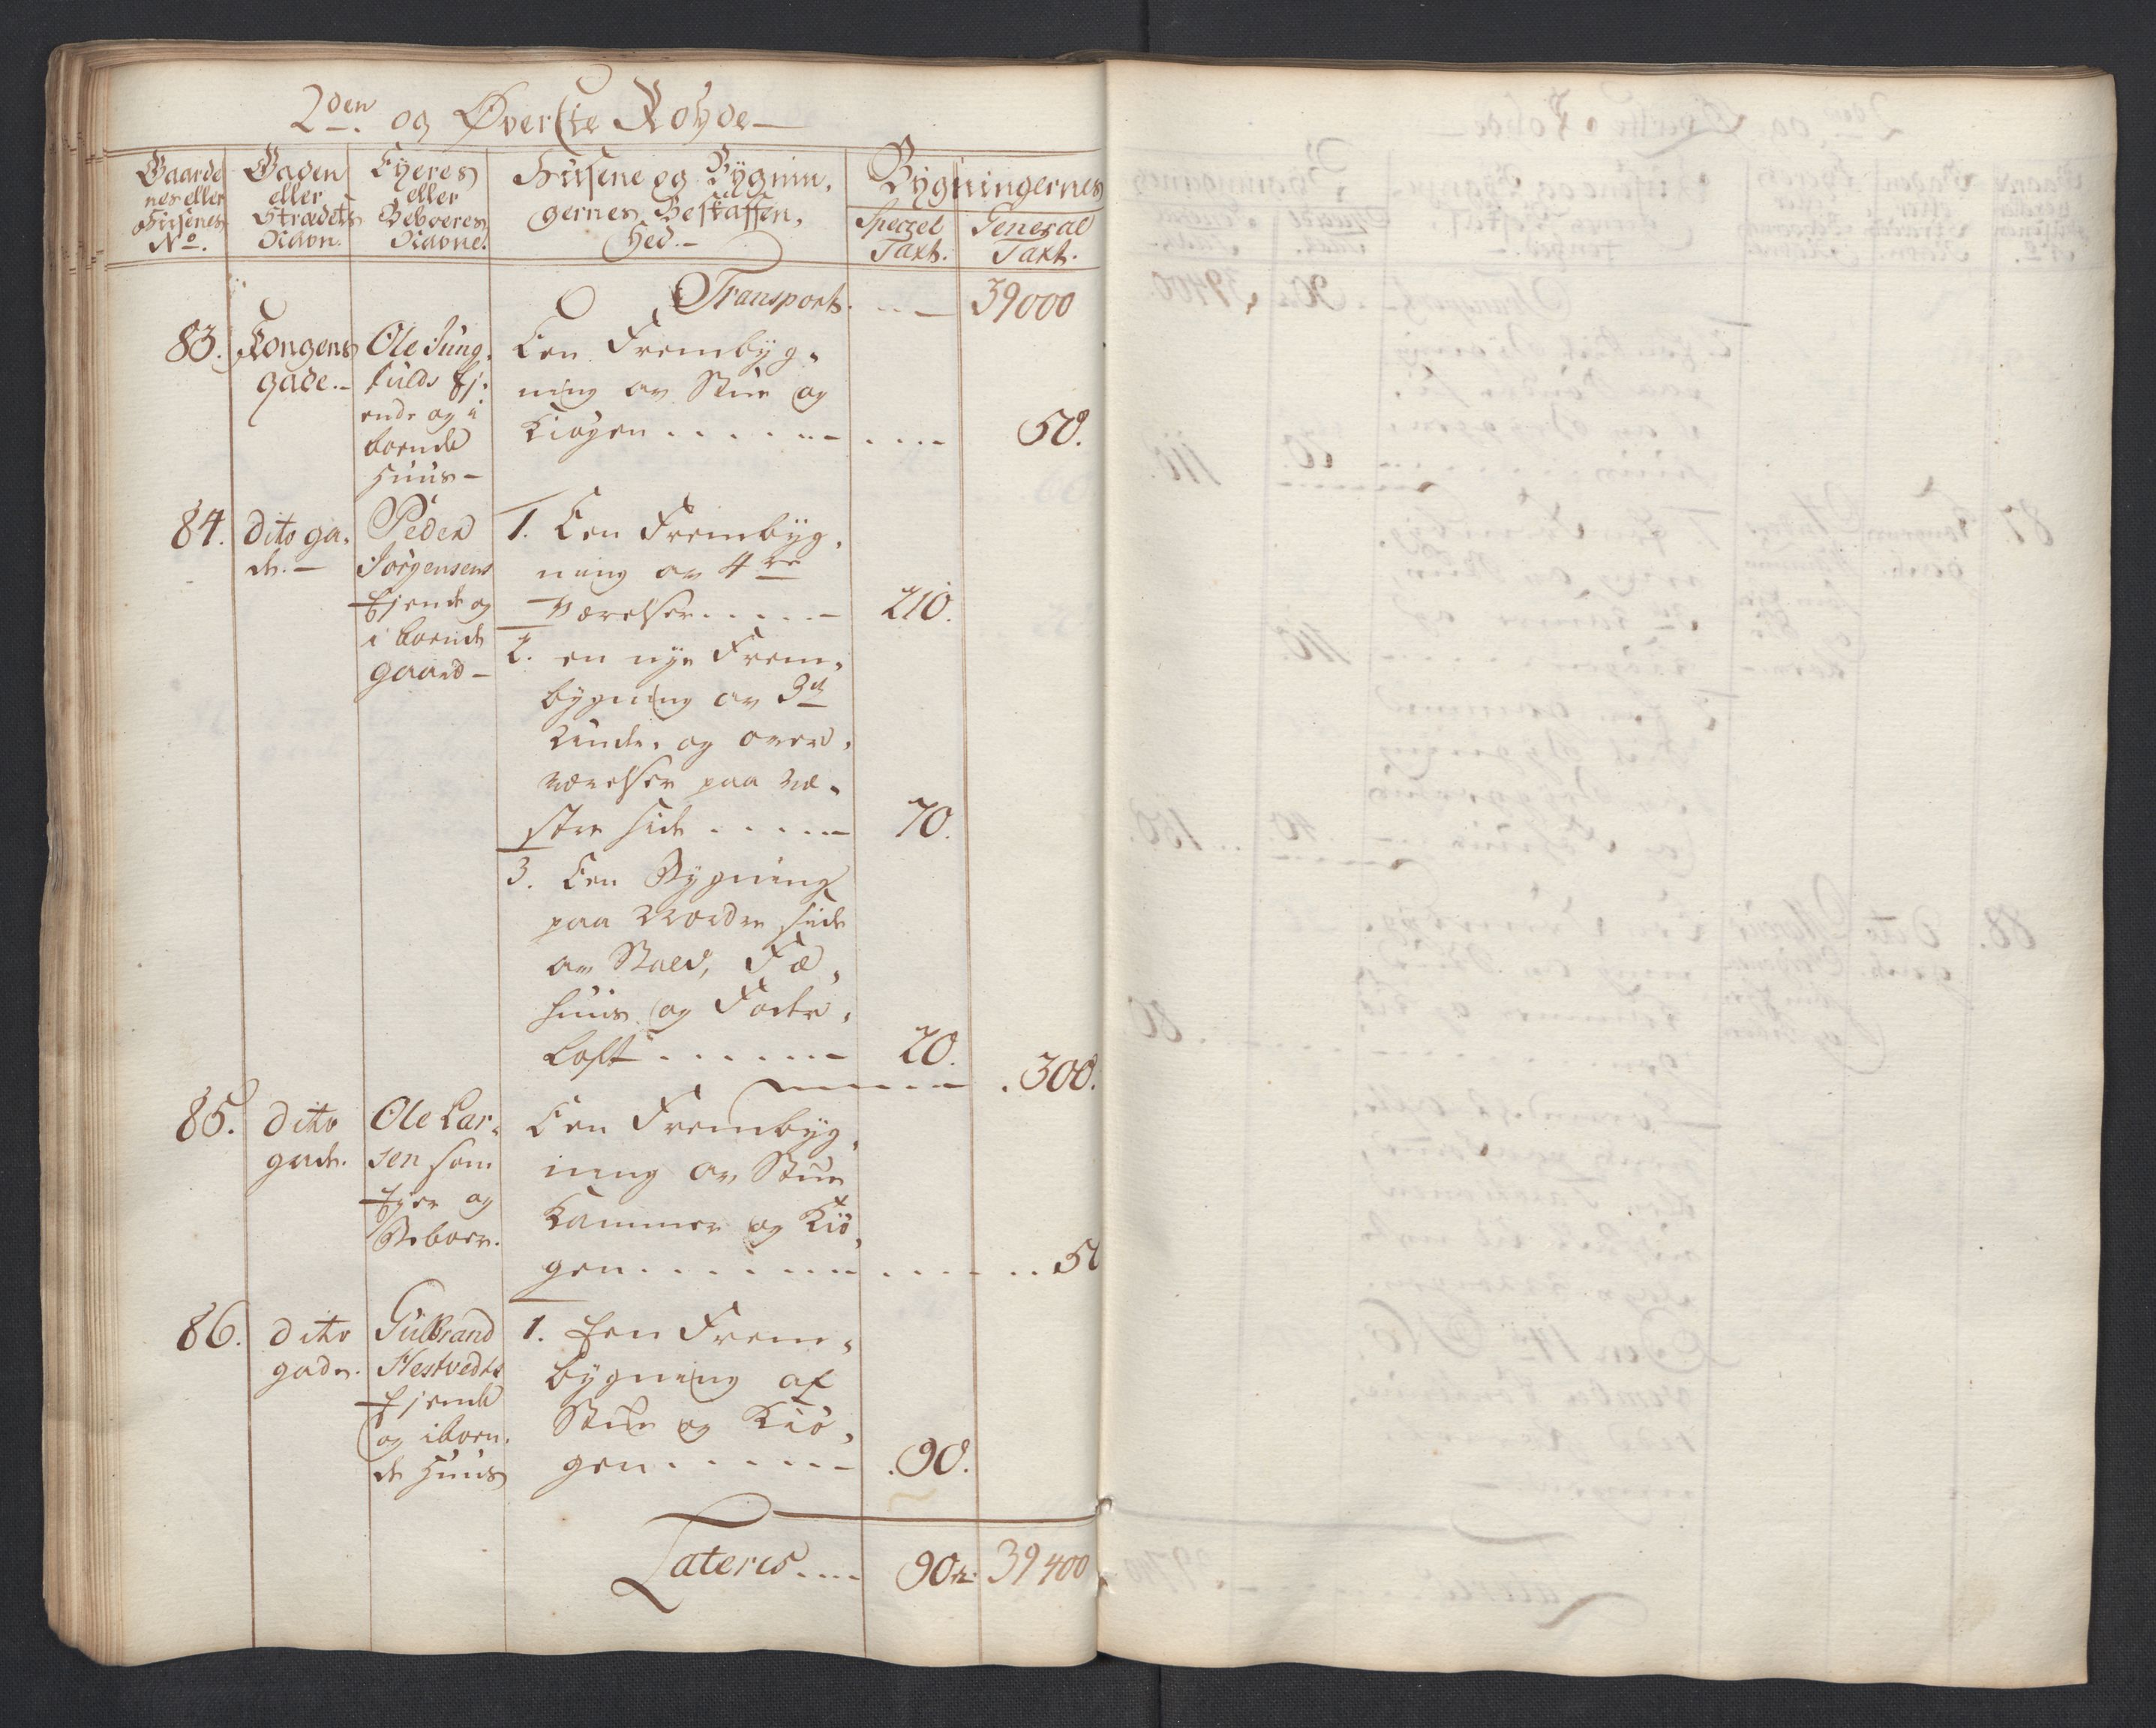 2den og Øverste Rohde
Gaarde
nes eller
Huusenes
No.
Gaden
eller
Strædets
Navn.
Eyeres
eller
Beboeres
Navne.
Huusene og Bygnin,
gernes Beskaffen,
hed.
Bygningernes
Speciel
Taxt.
General
Taxt.
Transport. 39000
83. Kongens
gade.
Ole Ljung,
kulds Ej,
ende og i
boende
Huus
Een Frembyg,
ning av Stue og
Kiøgen . . . . . . 50.
84. dito ga,
de.
Peder
Jørgensens
Ejende og
i boende
gaard
1. Een Frembyg,
ning av 4re
Værelser . . . . . 210.
2. en nye Frem,
bygning av 3de
Under, og over,
værelser paa Ve,
stre side . . . . . 70.
3. Een Bygning
paa Nordre side
av Stald, Fæ,
huus og Foder,
Loft . . . . . . 20.
300.
85. dito
gade.
Ole Lar,
sen som
Ejer og
Beboer.
Een Frembyg,
ning av Stue
Kammer og Kiø,
gen . . . . . . . . . . 50
86. dito
gade.
Gulbrand
Hestvedts
Ejende
og iboen,
de Huus
1. Een Frem,
bygning af
Stue og Kiø,
gen . . . . . . 90.
Lateris . . . . 90 r. 39400